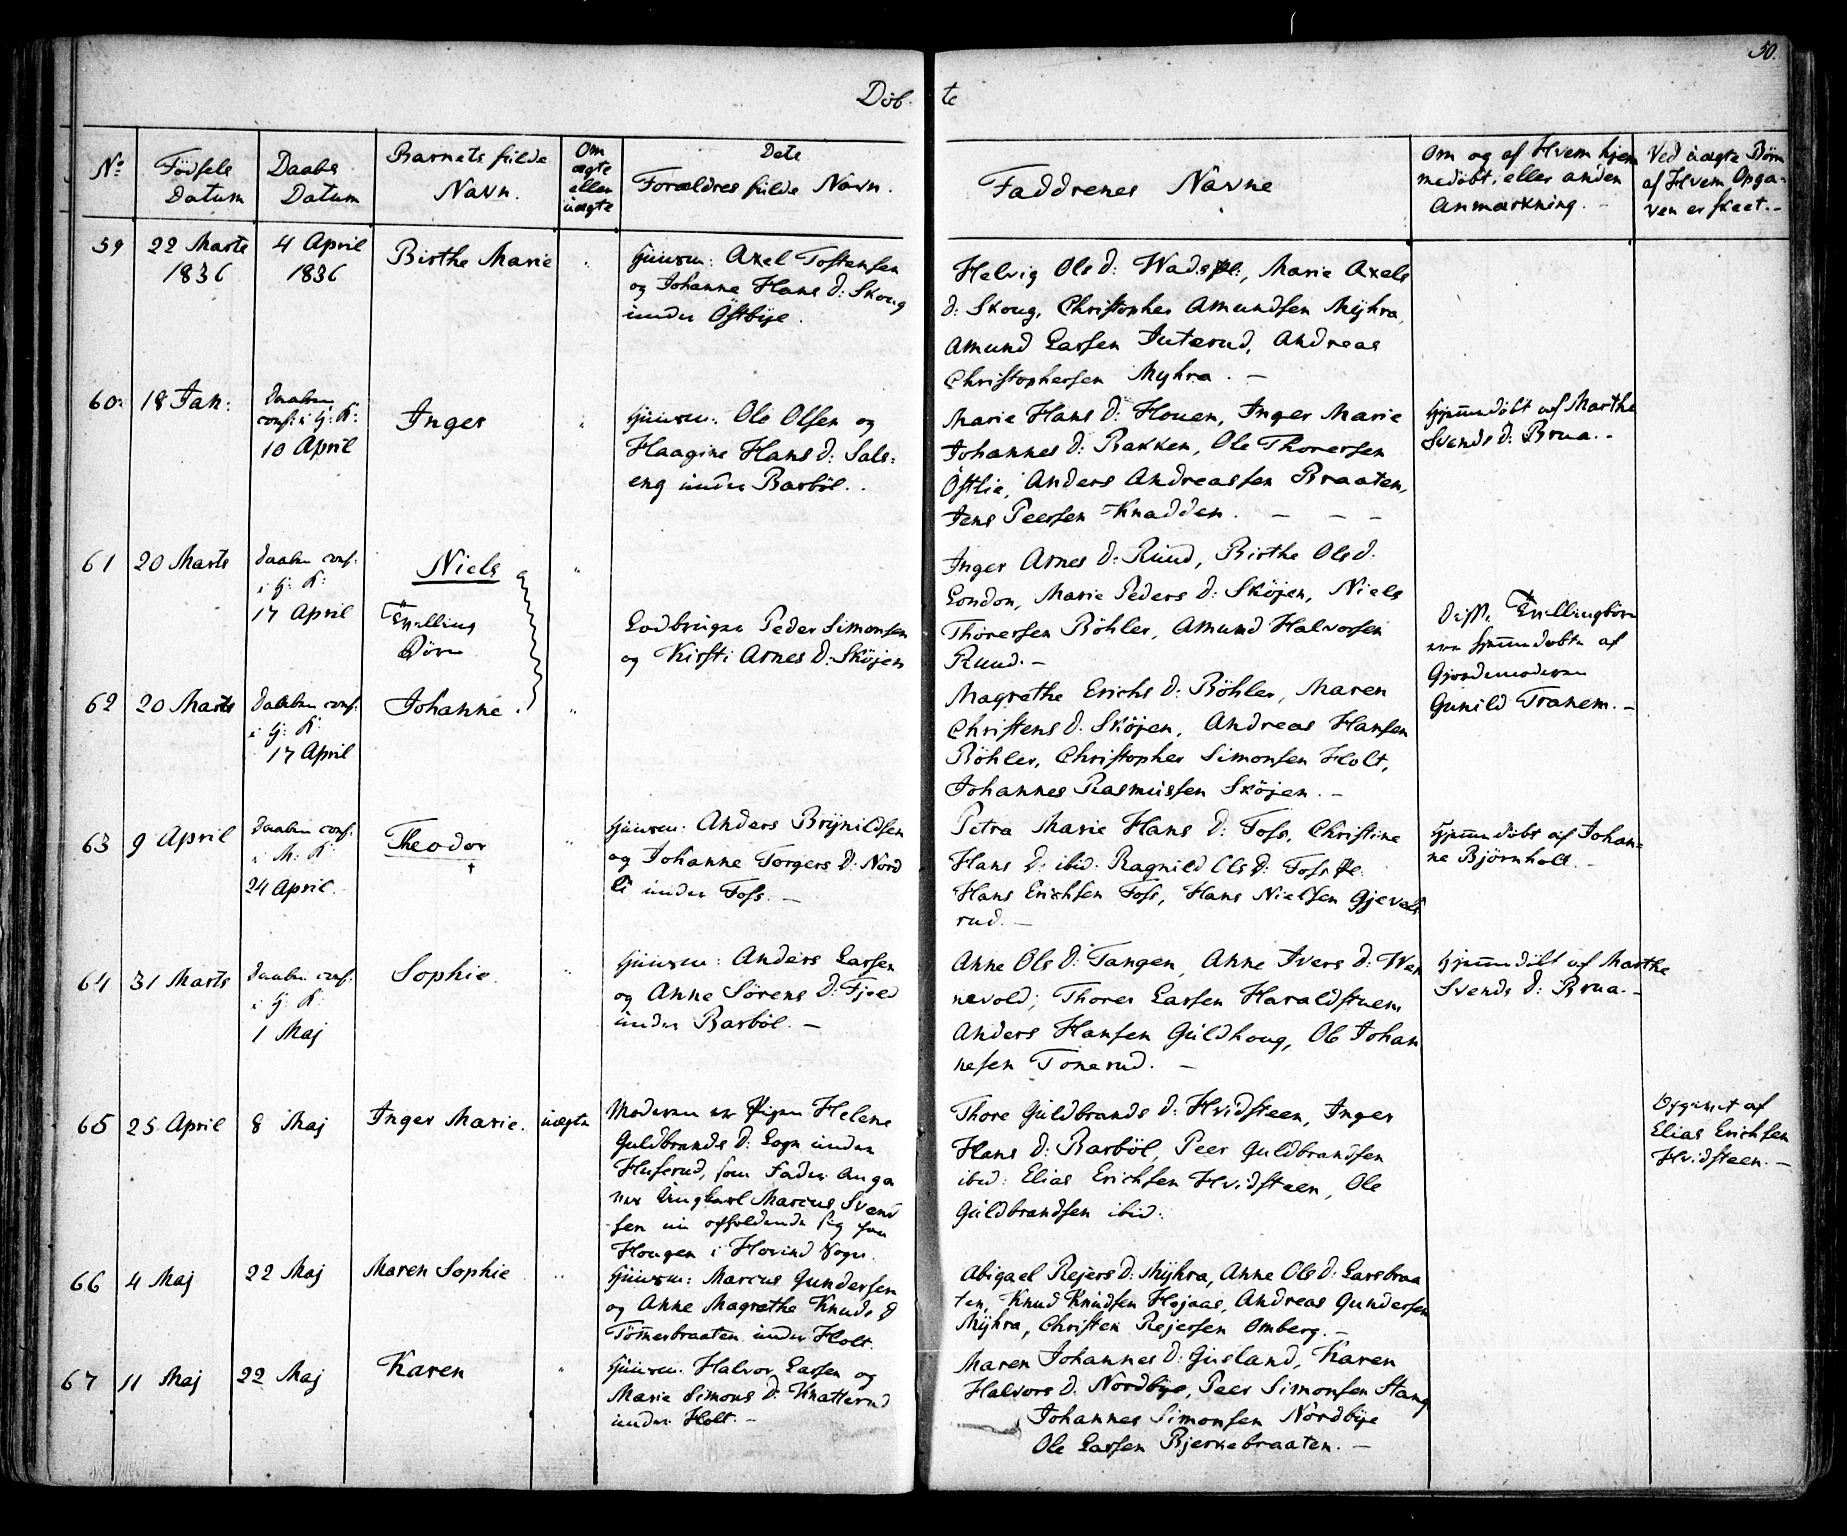 50.
Döb- te
No
Födsels
Datum
Daabs
Datum
Barnets fulde
Navn.
Om
ægte
eller
uægte
Dets
Forældres fulde Navn.
Faddrenes Navne
Om og af Hvem hjem
medøbt, eller anden
Anmærkning.
Ved uægte Børn
af Hvem Opga-
ven er skeet.-
59
22 Marts
1836
4 April
1836
Birthe Marie
Huusm: Axel Tostensen
og Johanne Hans D: Skoug
under Östbye.
Helvig Ols d: Wads, Marie Axels
d: Skoug, Christopher Amundsen Myhra,
Amund Larsen Juterud, Andreas
Christophersen Myhra. -
60.
18 Jan:
Daaben
conf: i H: K:
10 April
Inger
Huusm: Ole Olsen og
Haagine Hans D: Sals:
eng under Barböl.
Marie Hans D: Houen, Inger Marie
Johannes D: Bakken, Ole Thoresen
Östlie, Anders Andreassen Braaten,
Jens Peersen Knadden. - - -
Hjemmedöbt af Marthe
Svends D: Brua.-
61
20 Marts
Daaben conf.
i H: K:
17 April
Niels
Tvilling
Börn
Lodbruger Peder Simonsen
og Kirsti Arnes D: Sköjen
Inger Arnes D: Ruud, Birthe Ols d.
London, Marie Peders D: Sköjen, Niels
Thoresen Böhler, Amund Halvorsen
Ruud.-
Disse Tvillingbörn
ere hjemmedöbte af
Gjordemoderen
Gunild Tranem.-
62
20 Marts
Daaben conf.
i H: K:
17 April
Johanne.
Magrethe Erichs D: Böhler, Maren
Christens D: Sköjen, Andreas Hansen
Böhler, Christopher Simonsen Holt,
Johannes Rasmussen Sköjen. -
63
9 April
Daaben conf:
i M: K:
24 April.
Theodor
†
Huusm: Anders Brynildsen
og Johanne Torgers D: Nord
li under Foss. -
Petra Marie Hans D: Foss, Christine
Hans D: ibid: Ragnild Ols D: Foss
Hans Erichsen Foss, Hans Nielsen Gjevels
rud.-
Hjemmedöbt af Johan-
ne Björnholt. -
64
31 Marts
Daaben conf.
i H: K:
1 Maj
Sophie.
Huusm: Anders Larsen
og Anne Sörens D: Fjeld
under Barböl. -
Anne Ols D: Tangen, Anne Ivers D: Wen
nevold; Thorer Larsen Haraldstuen
Anders Hansen Guldhoug, Ole Johan
nesen Tonerud. -
Hjemmedöbt af Marthe
Svends D: Brua.-
65
25 April
8 Maj
Inger Marie.
uægte
Moderen er Pigen Helene
Guldbrands D: Sogn under
Huserud, som Fader anga
ves Ungkarl Marcus Svend
sen nu opholdende sig paa
Hougen i Hovind Sogn.
Thore Guldbrands D: Hvidsteen, Inger
Hans D: Barböl, Peer Guldbrandsen
ibid: Elias Erichsen Hvidsteen, Ole
Guldbrandsen ibid:
Opgivet af
Elias Erichsen
Hvidsteen.-
66
4 Maj
22 Maj
Maren Sophie
Huusm: Marcus Gundersen
og Anne Magrethe Knuds D
Tömmerbraaten under Holt.
Abigael Rejers D: Myhra, Anne Ols D: Larsbraa
ten, Knud Knudsen Höjaas, Andreas Gundersen
Myhra, Christen Rejersen Omberg.-
67
11 Maj
22 Maj
Karen
Huusm. Halvor Larsen og
Marie Simons D: Knatterud
under Holt.-
Maren Johannes D: Gusland, Karen
Halvors D. Nordbye, Peer Simonsen Stang
Johannes Simonsen Nordbye
Ole Larsen Bjerkebraaten. -